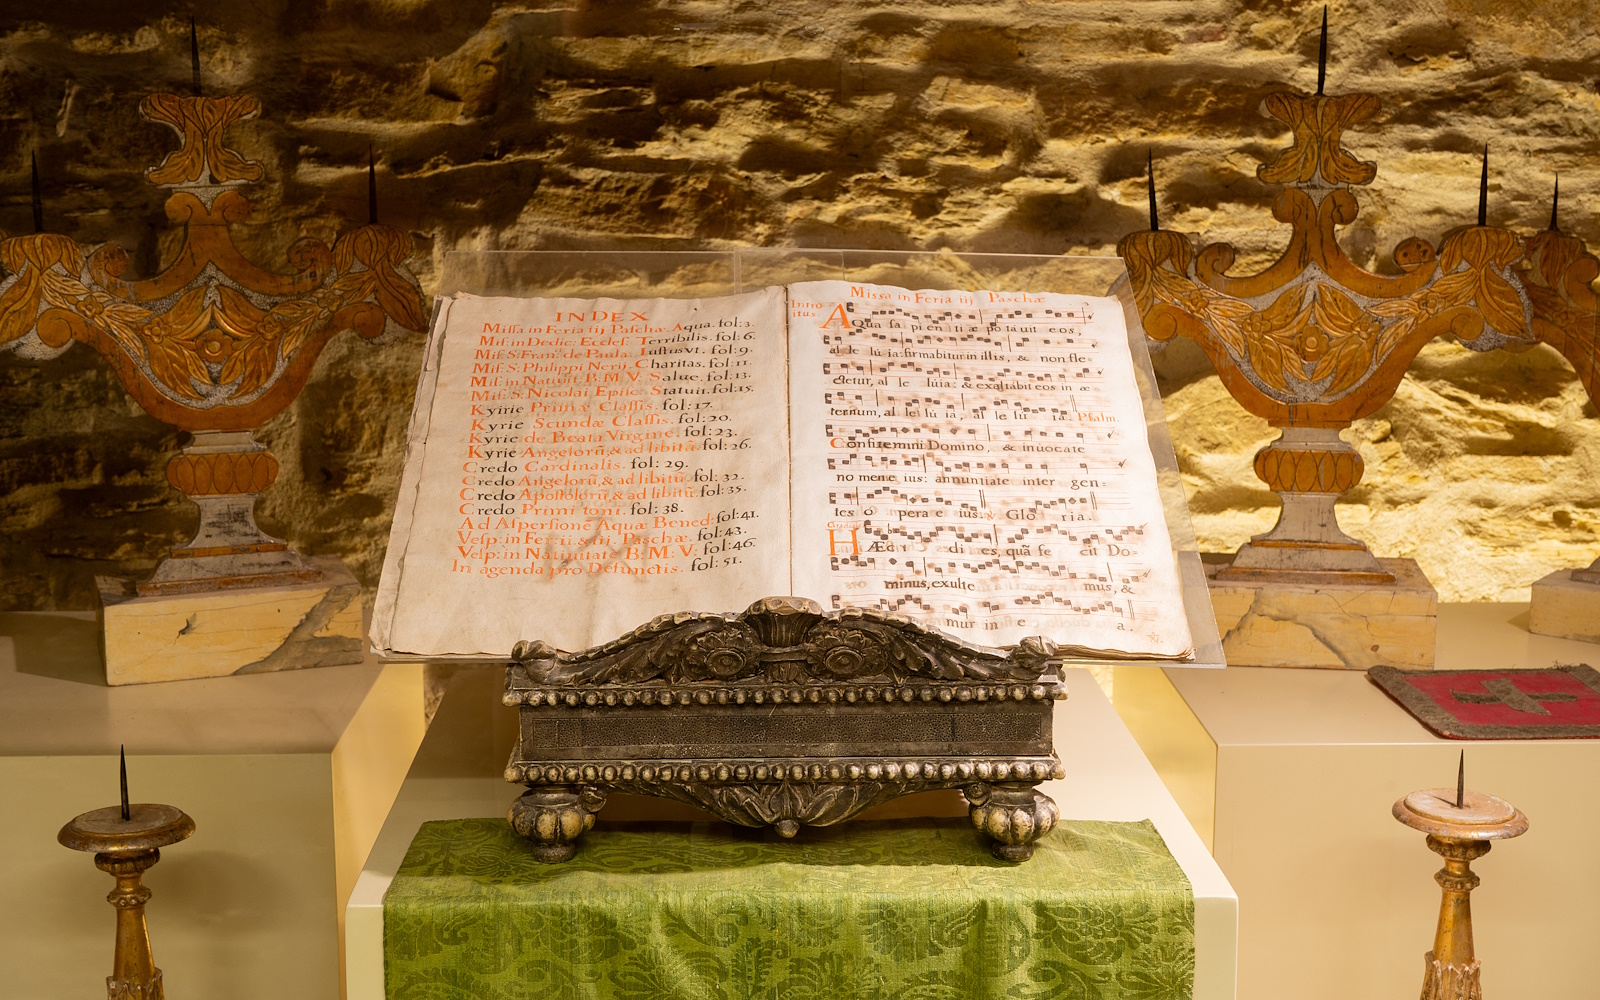 INDEX
Missa in Feria iij Paschæ. Aqua. fol: 3.
Mis. in Dedic: Eccles. Terribilis. fol: 6.
Mis. S. Fran. de Paula. Iustus Vt. fol: 9.
Mis. S. Philippi Nerij. Charitas. fol: 11.
Mis. in Nativit. B. M. V. Salue. fol. 13.
Mis. S. Nicolai Episc. Statuit. fol: 15.
Kyirie Primæ Classis. fol: 17.
Kyrie Scundæ Classis. fol: 20.
Kyrie de Beata Virgine. fol: 23.
Kyrie Angelorũ, & ad libitũ fol: 26.
Credo Cardinalis. fol: 29.
Credo Angelorũ, & ad libitũ. fol: 32.
Credo Apostolorũ, & ad libitũ. fol: 35.
Credo Primi toni. fol: 38.
Ad Aspersionẽ Aquæ Bened: fol: 41.
Vesp: in Fer: ii. & iij. Paschæ. fol: 43.
Vesp: in Natiuitate B: M: V: fol: 46.
In agenda pro Defunctis. fol: 51.
Missa in Feria iij Paschæ 3
Intro
itus.
AQua sa pi en ti æ po tauit eos,
al le lú ia: firmabitur in illis, & non fle=
ctetur, al le lúia: & exaltábit eos in æ
ternum, al le lú ia, al le lú ia. Psalm.
Confitemini Domino, & inuocate
no mene ius: annuntiate inter gen=
tes ó pera e ius. Gló ria.
HÆc di es, quã fe cit Do=
minus, exulte mus, &
mur in e a.